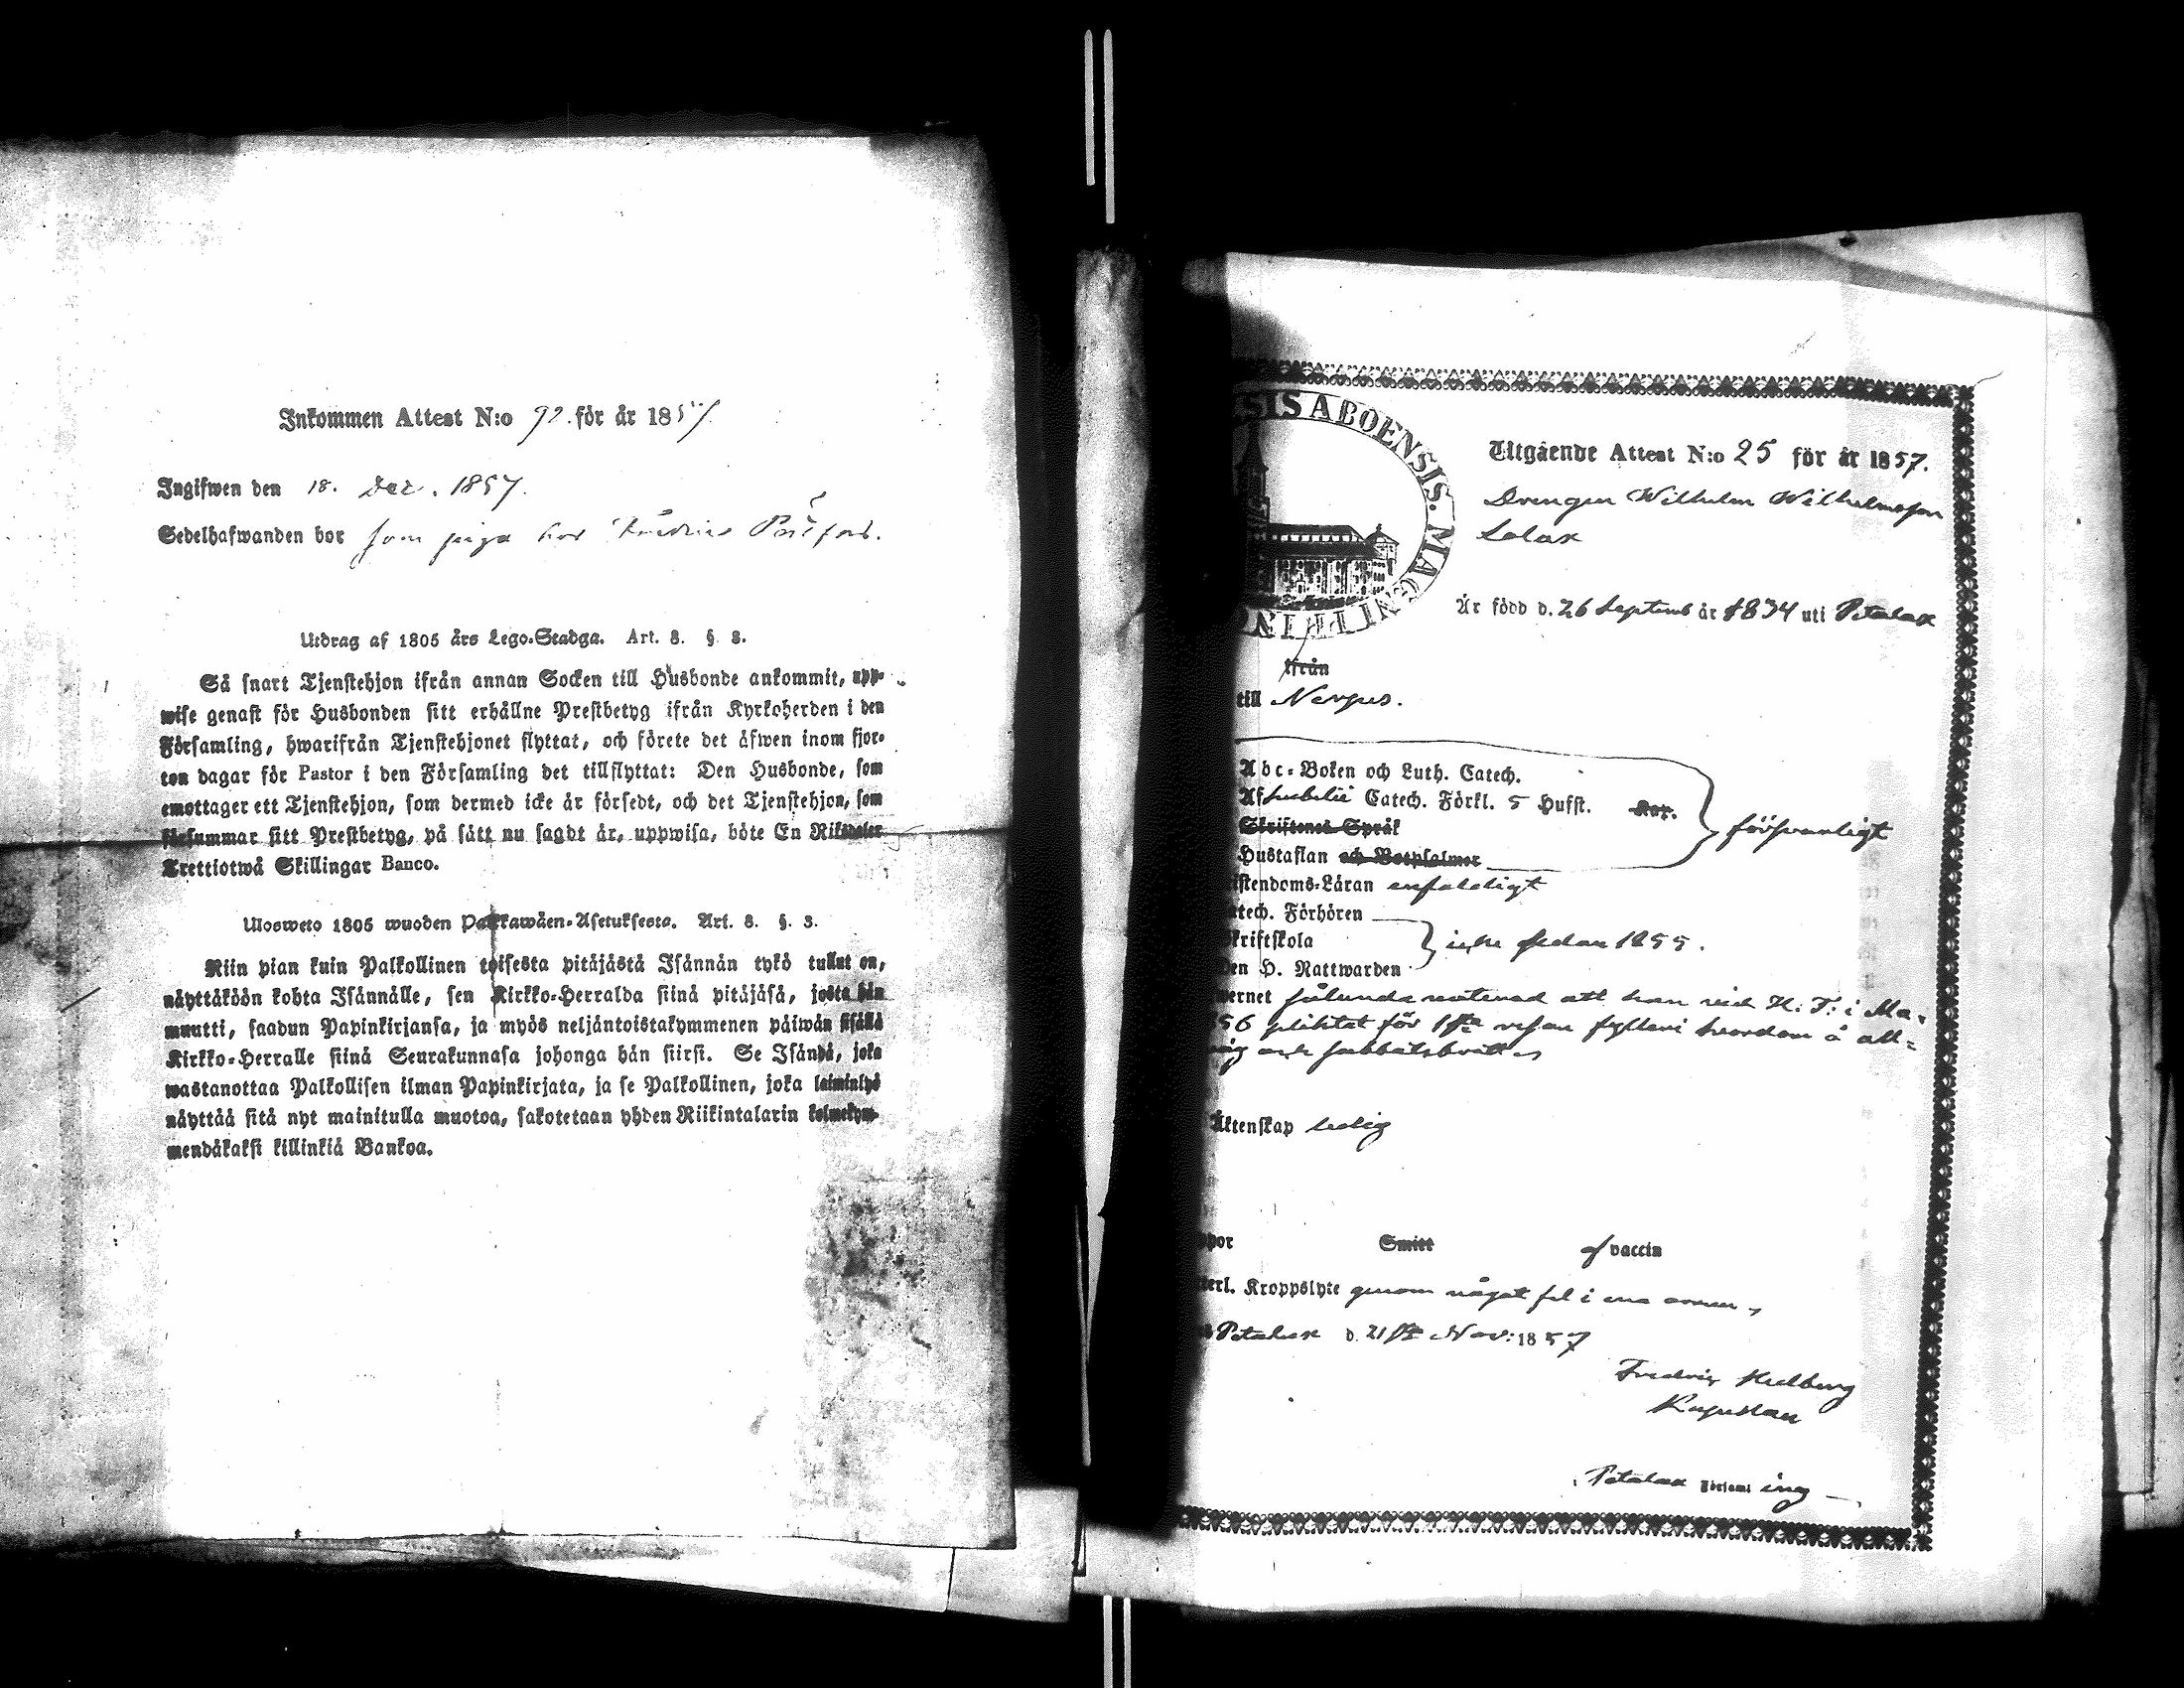 Inkommen Attest N:o 92. för år 1857.
Ingifwen den 18. Dec. 1857.
Sedelhafwanden bor som piga hos
Utdrag af 1805 års Lego-Stadga. Art. 8. §. 3.
Så snart Tjenstehjon ifrån annan Socken till Husbonde ankommit, upp-
wise genast för Husbonden sitt erhållne Prestbetyg ifrån Kyrkoherden i den
Församling, hwarifrån Tjenstehjonet flyttat, och förete det äfwen inom fjor-
ton dagar för Pastor i den Församling det tillflyttat: Den Husbonde, som
emottager ett Tjenstehjon, som dermed icke är försedt, och det Tjenstehjon, som
försummar sitt Prestbetyg, på sätt nu sagdt är, uppwisa, böte En Riksdaler
Trettiotwå Skillingar Banco.
Ulosweto 1805 wuoden Palkkawäen-Asetuksesta. Art. 8. §. 3.
Niin pian kuin Palkollinen toisesta pitäjästä Isännän tykö tullut on,
näyttäköön kohta Isännälle, sen Kirkko-Herralda siinä pitäjäsä, josta hän
muutti, saadun Papinkirjansa, ja myös neljäntoistakymmenen päiwän sisällä
Kirkko-Herralle siinä Seurakunnasa johonga hän siirsi. Se Isändä, joka
wastanottaa Palkollisen ilman Papinkirjata, ja se Palkollinen, joka laiminlyö
näyttää sitä nyt mainitulla muotoa, sakotetaan yhden Riikintalarin kolmekym-
mendäkaksi killinkiä Bankoa.
SIS ABOENSIS. MAGNI
Utgående Attest N:o 25 för år 1857.
Drengen Wilhelm Wilhelmsson
Lolax
Är född d. 26 Septemb år 1834 uti Petalax
ifrån
till Nerpes.
Abc-Boken och Luth. Catech.
Af Svebelii Catech. Förkl. 5 Hufst. Kap.
Skriftenes Språk
försvarligt
Hustaflan och Botpsalmer
istendoms-Läran enfaldigt
atech. Förhören
kriftskola
icke sedan 1855.
den H. Nattwarden
wernet sålunda noterad att han vid H. T. i Ma-
56 pliktat för 1sta resan fylleri hvardom å all-
väg och sabbatsbrott
Äktenskap ledig
ppor Smitt af vaccin
terl. Kroppslyte genom något fel i ena armen,
Petalax d. 21sta Nov: 1857
Fredrik
Kapellan
Petalax Församl ing